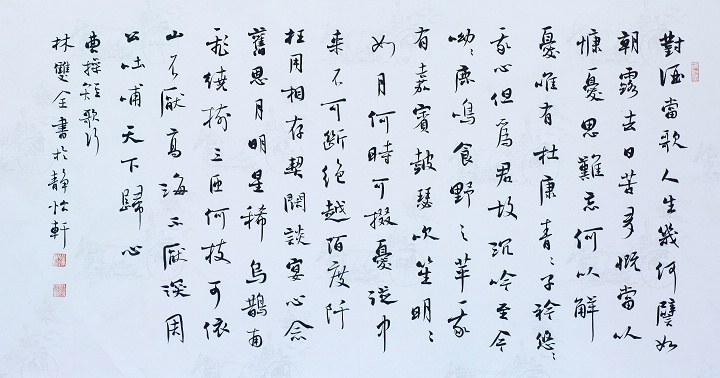 對酒當歌人生幾何譬如
朝露去日苦多慨當以
慷憂思難忘何以解
憂唯有杜康青〻子衿悠〻
我心但爲君故沉吟至今
呦〻鹿鳴食野之苹我
有嘉賓鼓瑟吹笙明〻
如月何時可掇憂從中
来不可斷絶越陌度阡
枉用相存契闊談宴心念
舊恩月明星稀烏鵲南
飛繞樹三匝何枝可依
山不厭高海不厭深周
公吐哺天下歸心
曹操短歌行
林雙全書於靜怡軒